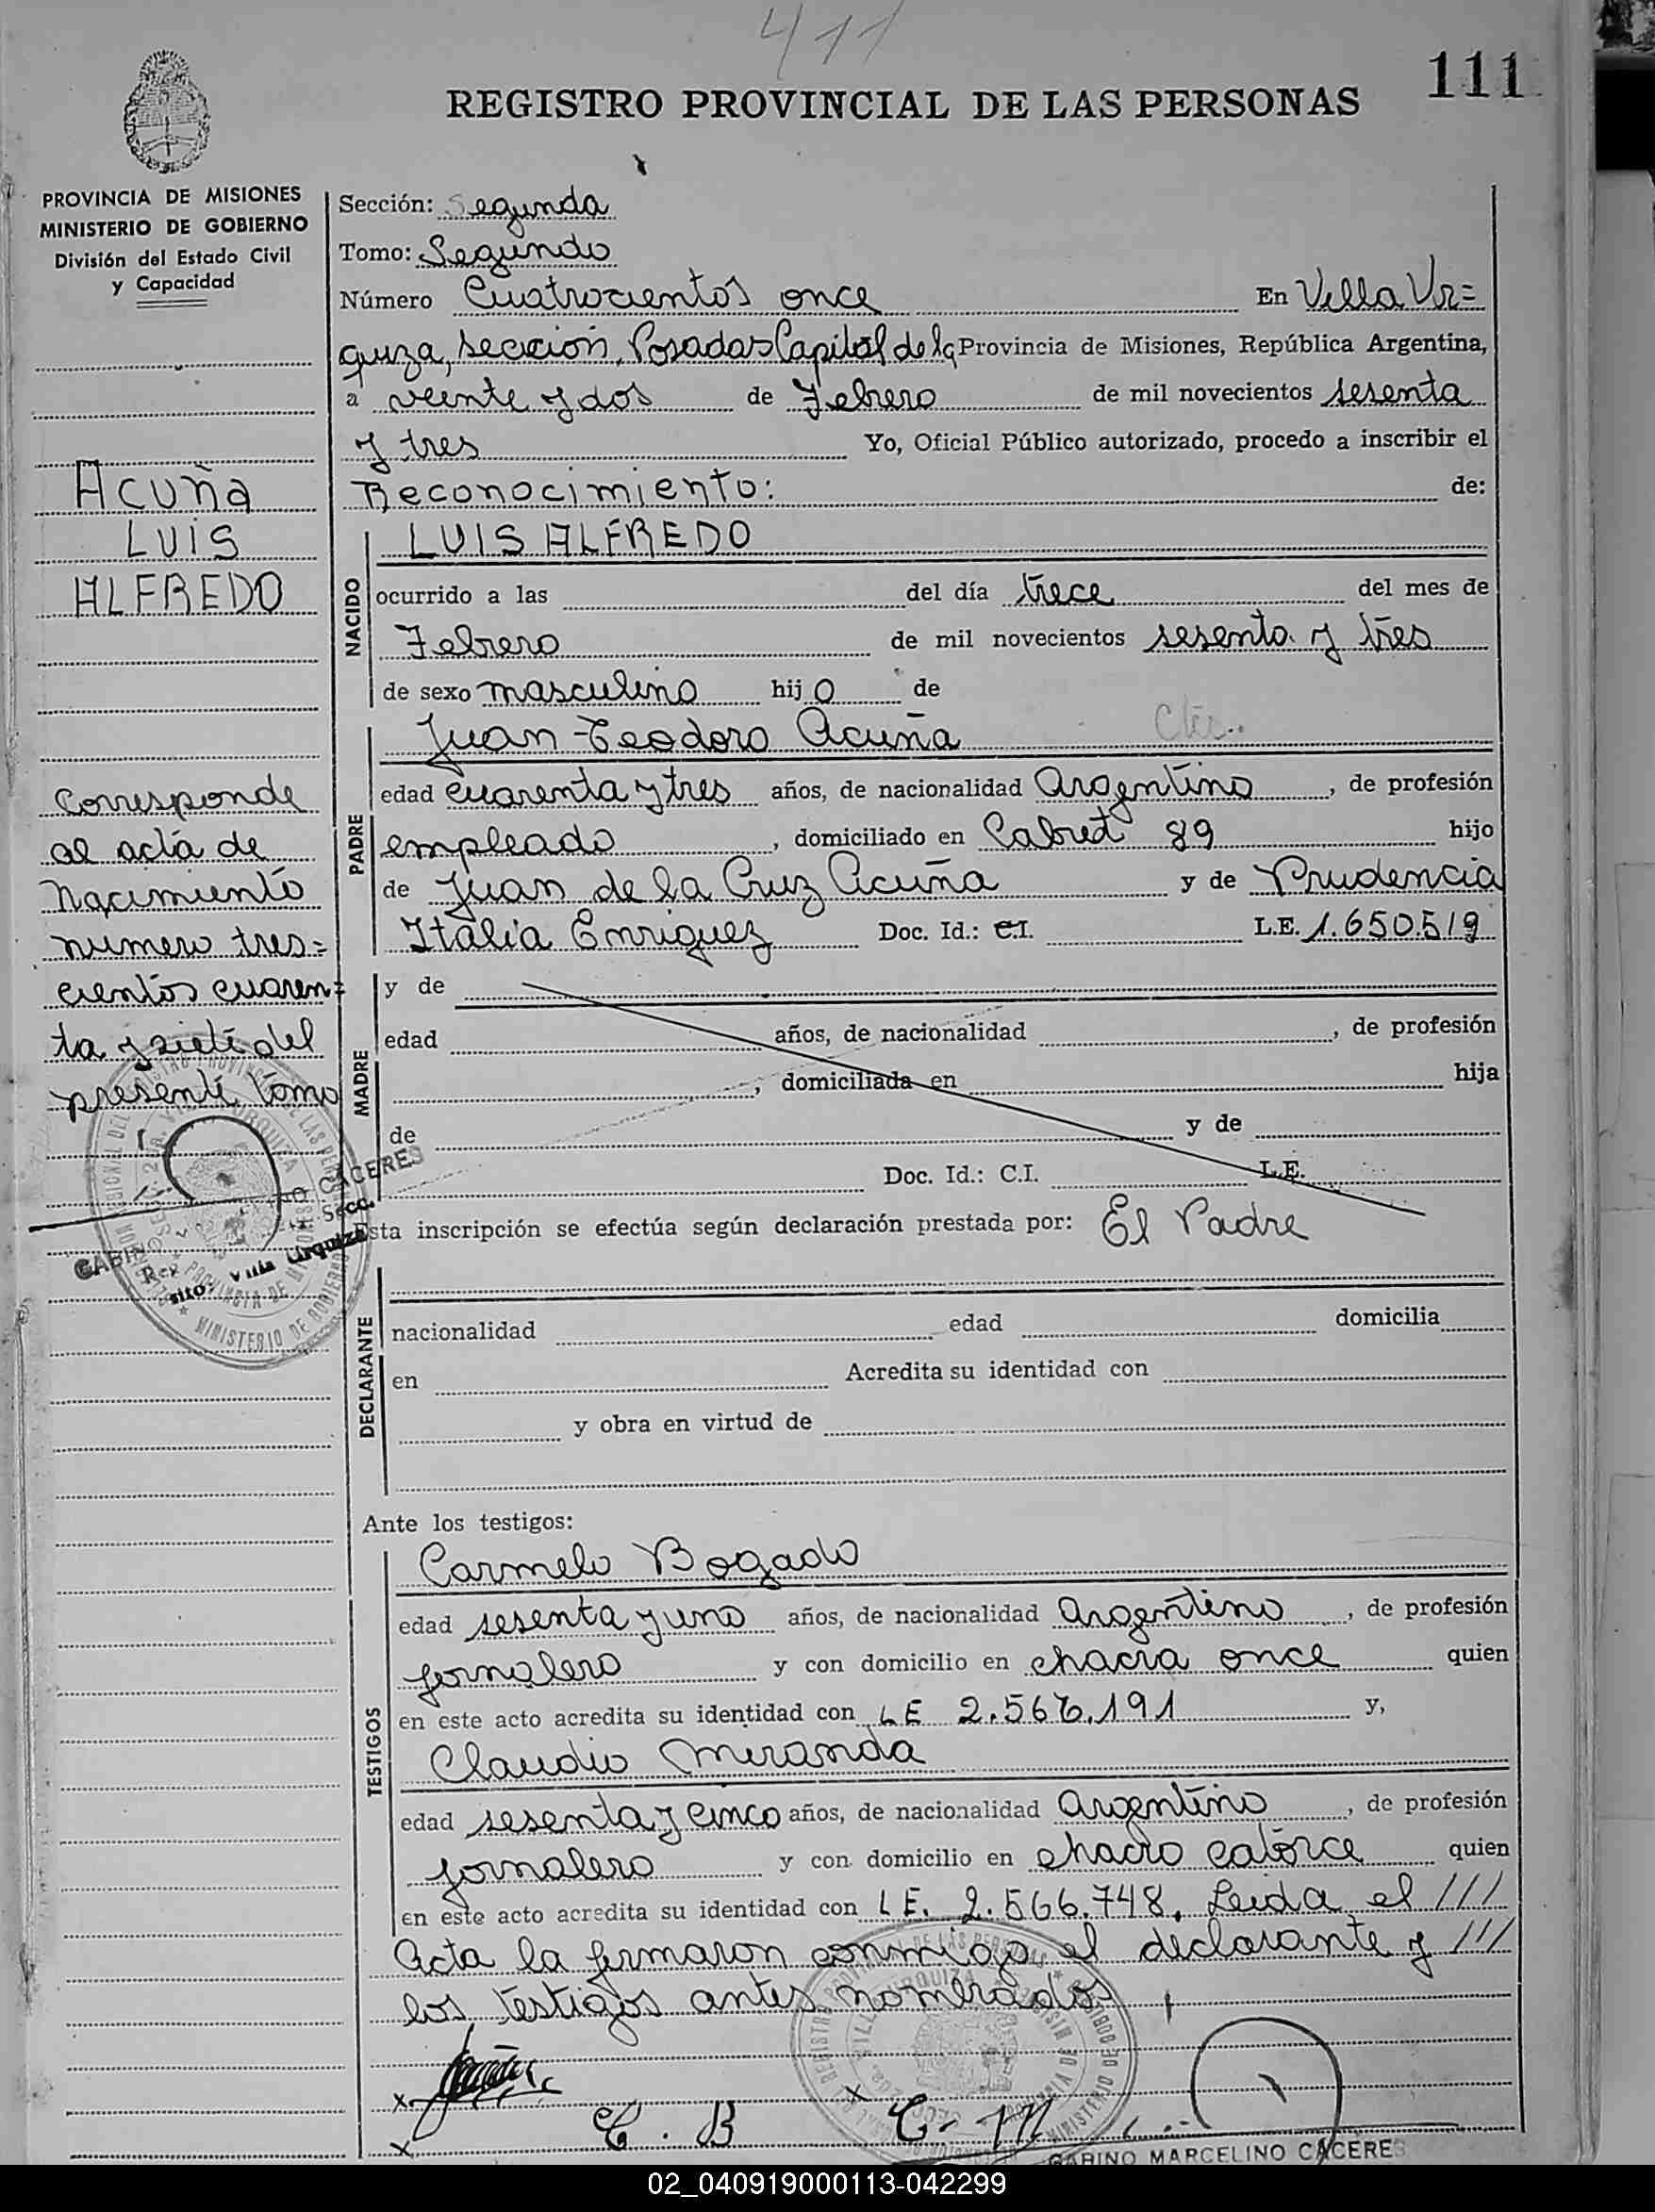 411
111
REGISTRO PROVINCIAL DE LAS PERSONAS
PROVINCIA DE MISIONES
MINISTERIO DE GOBIERNO
División del Estado Civil
y Capacidad
Acuña
LUIS
ALFREDO
Corresponde
al acta de
Nacimiento
numero tres=
cientos cuaren=
ta y siete del
presente Tomo
Sección: Segunda
Tomo: Segundo
Número Cuatrocientos once En Villa Ur=
quiza, sección, Posadas Capital de la Provincia de Misiones, República Argentina,
a veinte y dos de Febrero de mil novecientos sesenta
y tres Yo, Oficial Público autorizado, procedo a inscribir el
Reconocimiento: de:
NACIDO
LUIS ALFREDO
ocurrido a las del día trece del mes de
Febrero de mil novecientos sesenta y tres
de sexo masculino hijo de
PADRE
Juan Teodoro Acuña
edad cuarenta y tres años, de nacionalidad Argentino, de profesión
empleado, domiciliado en Cabret 89 hijo
de Juan de la Cruz Acuña y de Prudencia
Italia Enriquez Doc. Id.: C.I. L.E. 1.650.519
MADRE
y de
edad años, de nacionalidad , de profesión
, domiciliada en hija
de y de
Doc. Id.: C.I. L.E.
Esta inscripción se efectúa según declaración prestada por: El Padre
DECLARANTE
nacionalidad edad domicilia
en Acredita su identidad con
y obra en virtud de
Ante los testigos:
TESTIGOS
Carmelo Bogado
edad sesenta y uno años, de nacionalidad Argentino, de profesión
jornalero y con domicilio en chacra once quien
en este acto acredita su identidad con LE 2.566.191 y,
Claudio Miranda
edad sesenta y cinco años, de nacionalidad Argentino, de profesión
jornalero y con domicilio en chacra catorce quien
en este acto acredita su identidad con LE. 2.566.748. Leida el ///
Acta la firmaron conmigo el declarante y ///
los testigos antes nombrados
C. B C. M
GABINO MARCELINO CACERES
02_040919000113-042299